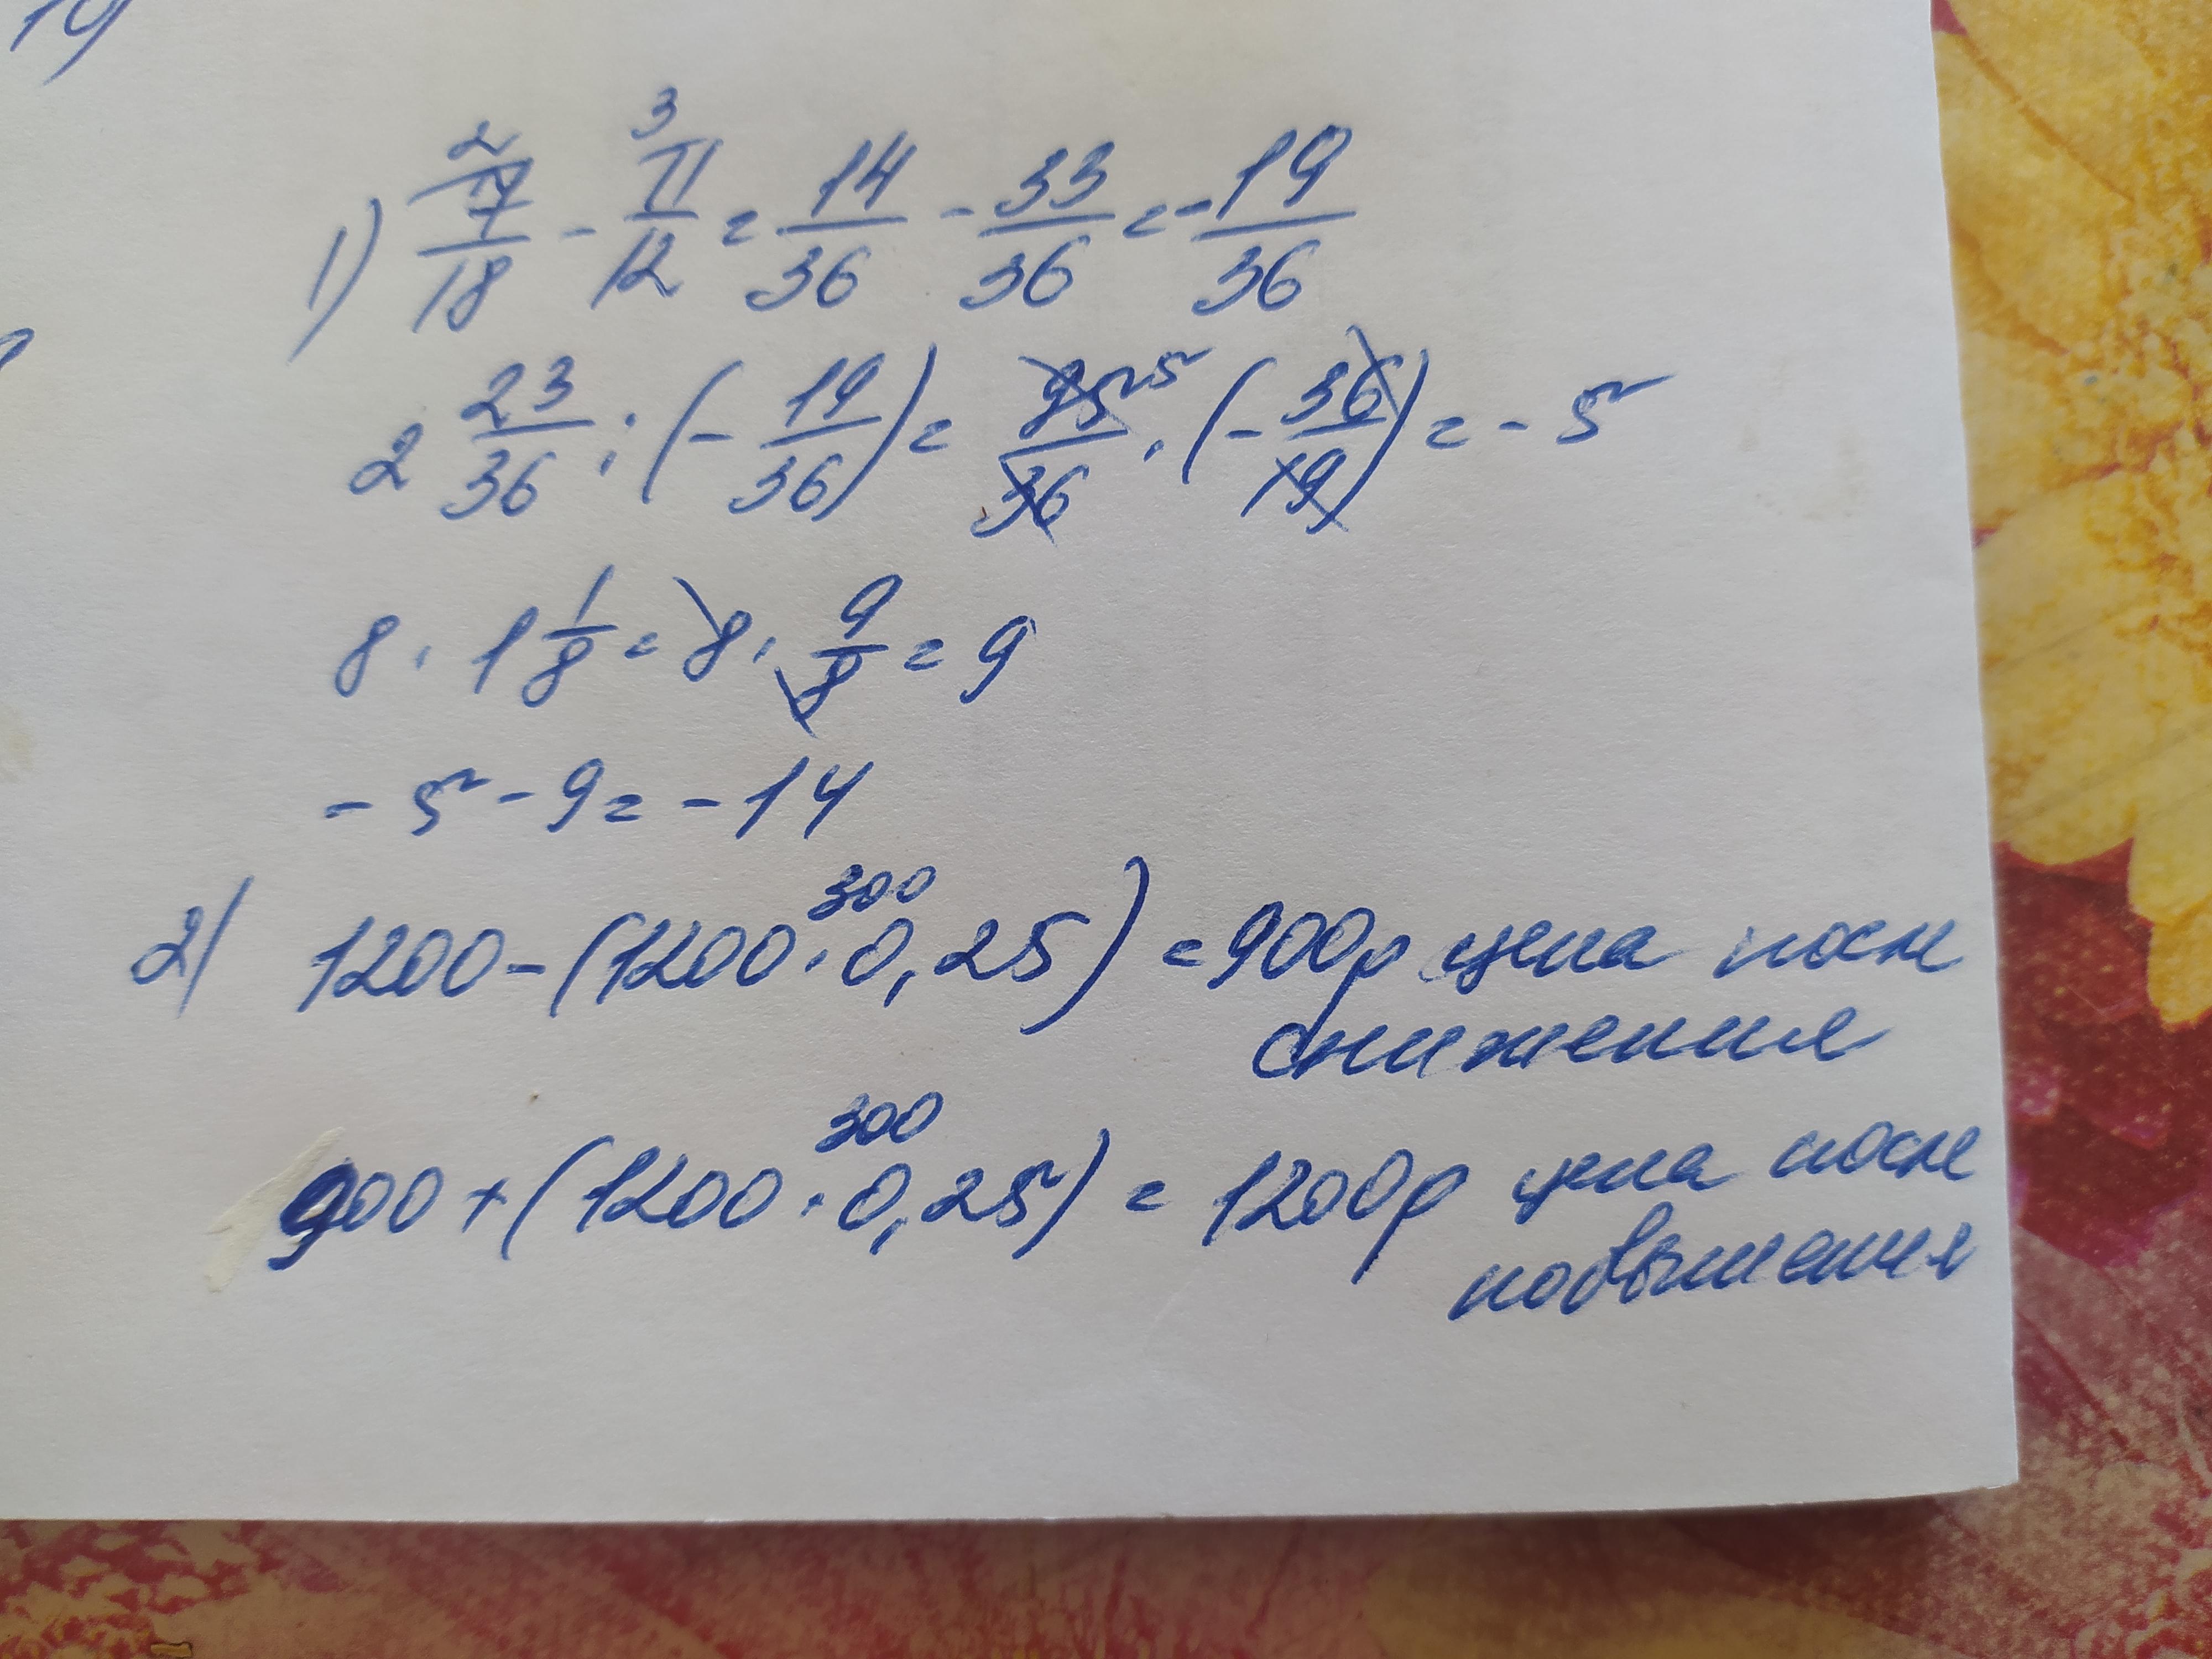 1) 2 7/18 - 3 11/12 = 14/36 - 33/36 = - 19/36
2 23/36 : (- 19/36) = 95 5/36 · (- 36/19) = - 5
8 · 1 1/8 = 8 · 9/8 = 9
- 5 - 9 = - 14
300
2) 1200 - (1200 · 0,25) = 900р цена после
снижения
300
900 + (1200 · 0,25) = 1200р цена после
повышения